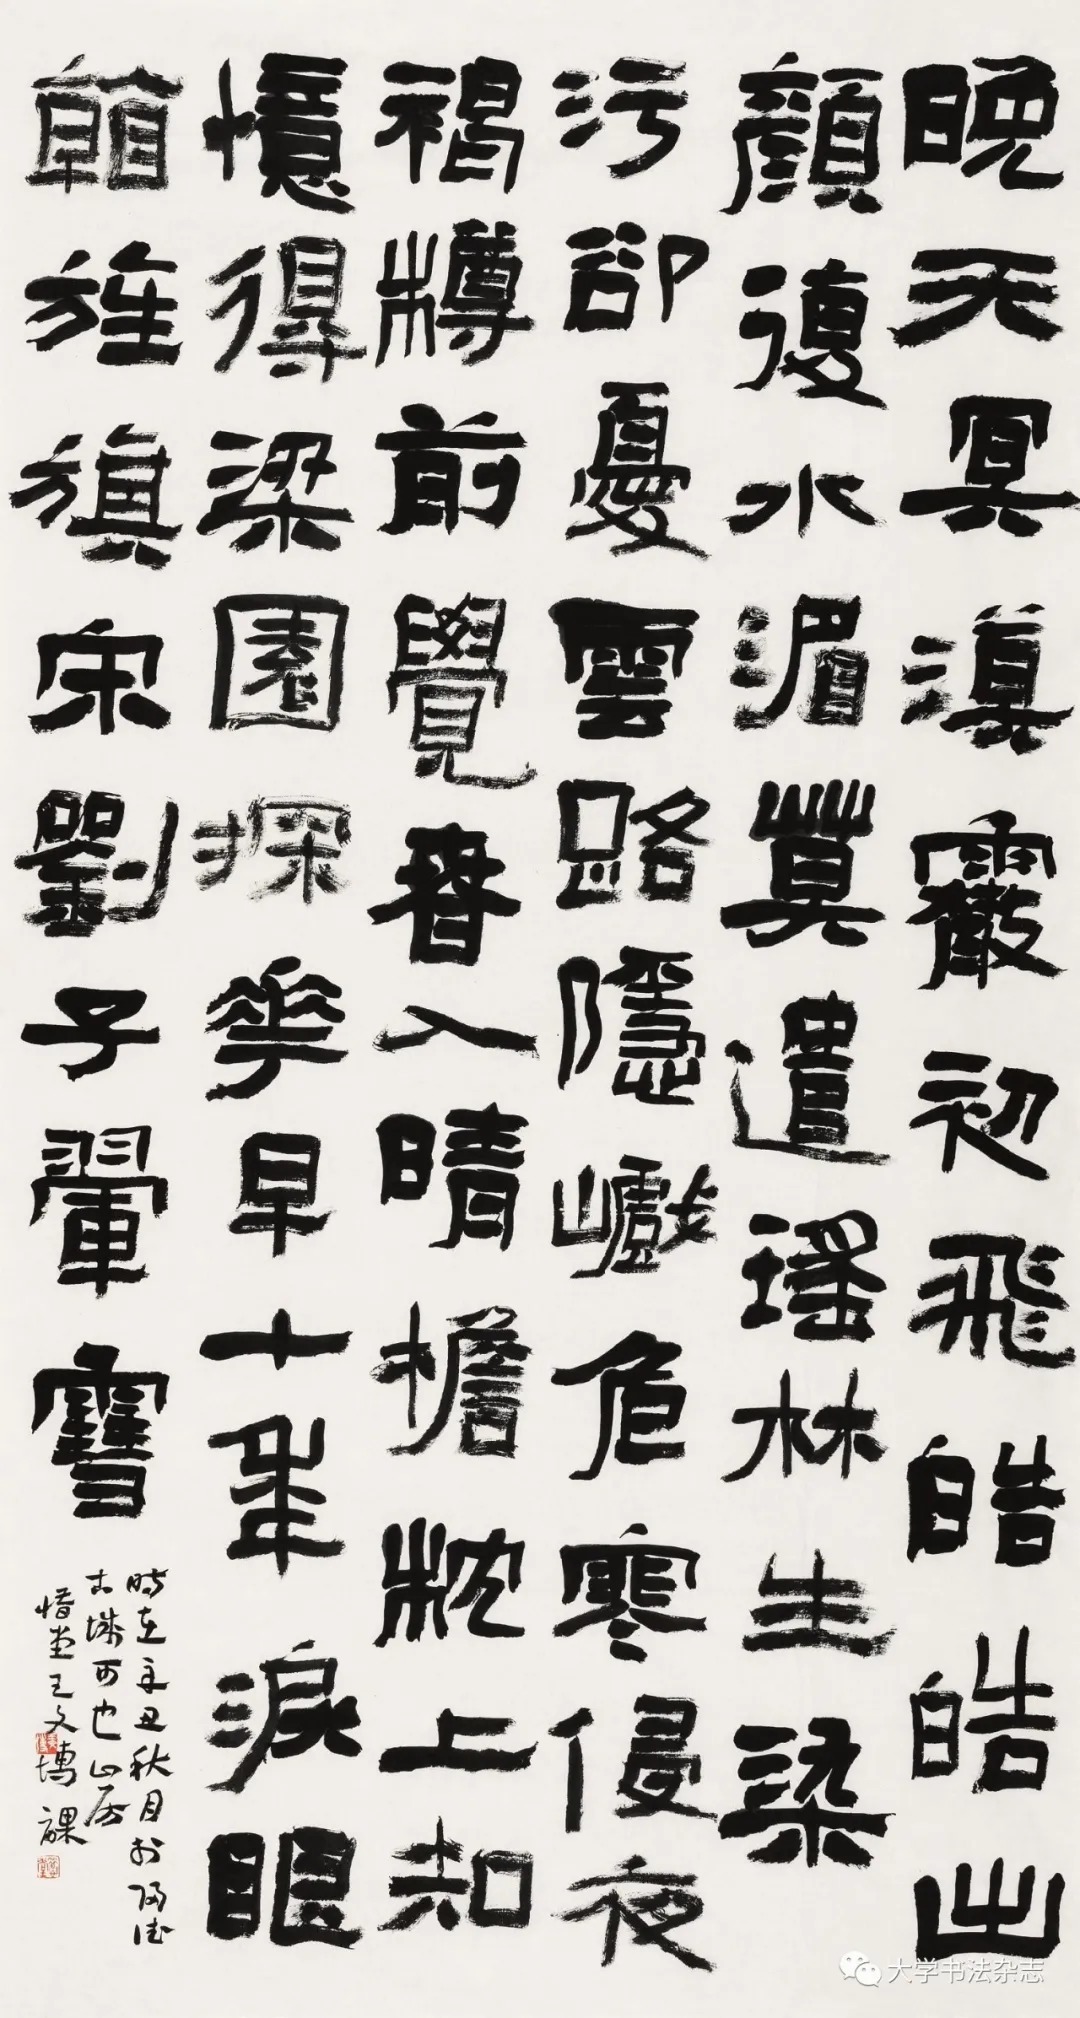 晚天冥漠霰初飛皓皓出
顏復水湄莫遣瑤林生染
污卻憂雲路隱巇危寒侵夜
褐樽前覺春入晴檐枕上知
憶得梁園探華早十年淚眼
旌旗宋劉子翬雪
時在辛丑秋月於歸德
古城可也山房
惜堂王文博課
大学书法杂志